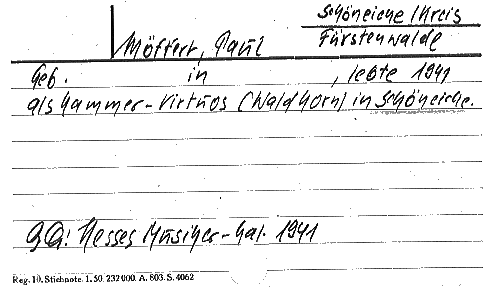 Schöneiche/Kreis
Möffert, Paul Fürstenwalde
Geb. in , lebte 1941
als Kammer-Virtuos (Waldhorn) in Schöneiche.
Hesses Musiker-Kal. 1941
Reg. 10. Stichnote. 1. 50. 232000. A. 803. S. 4062